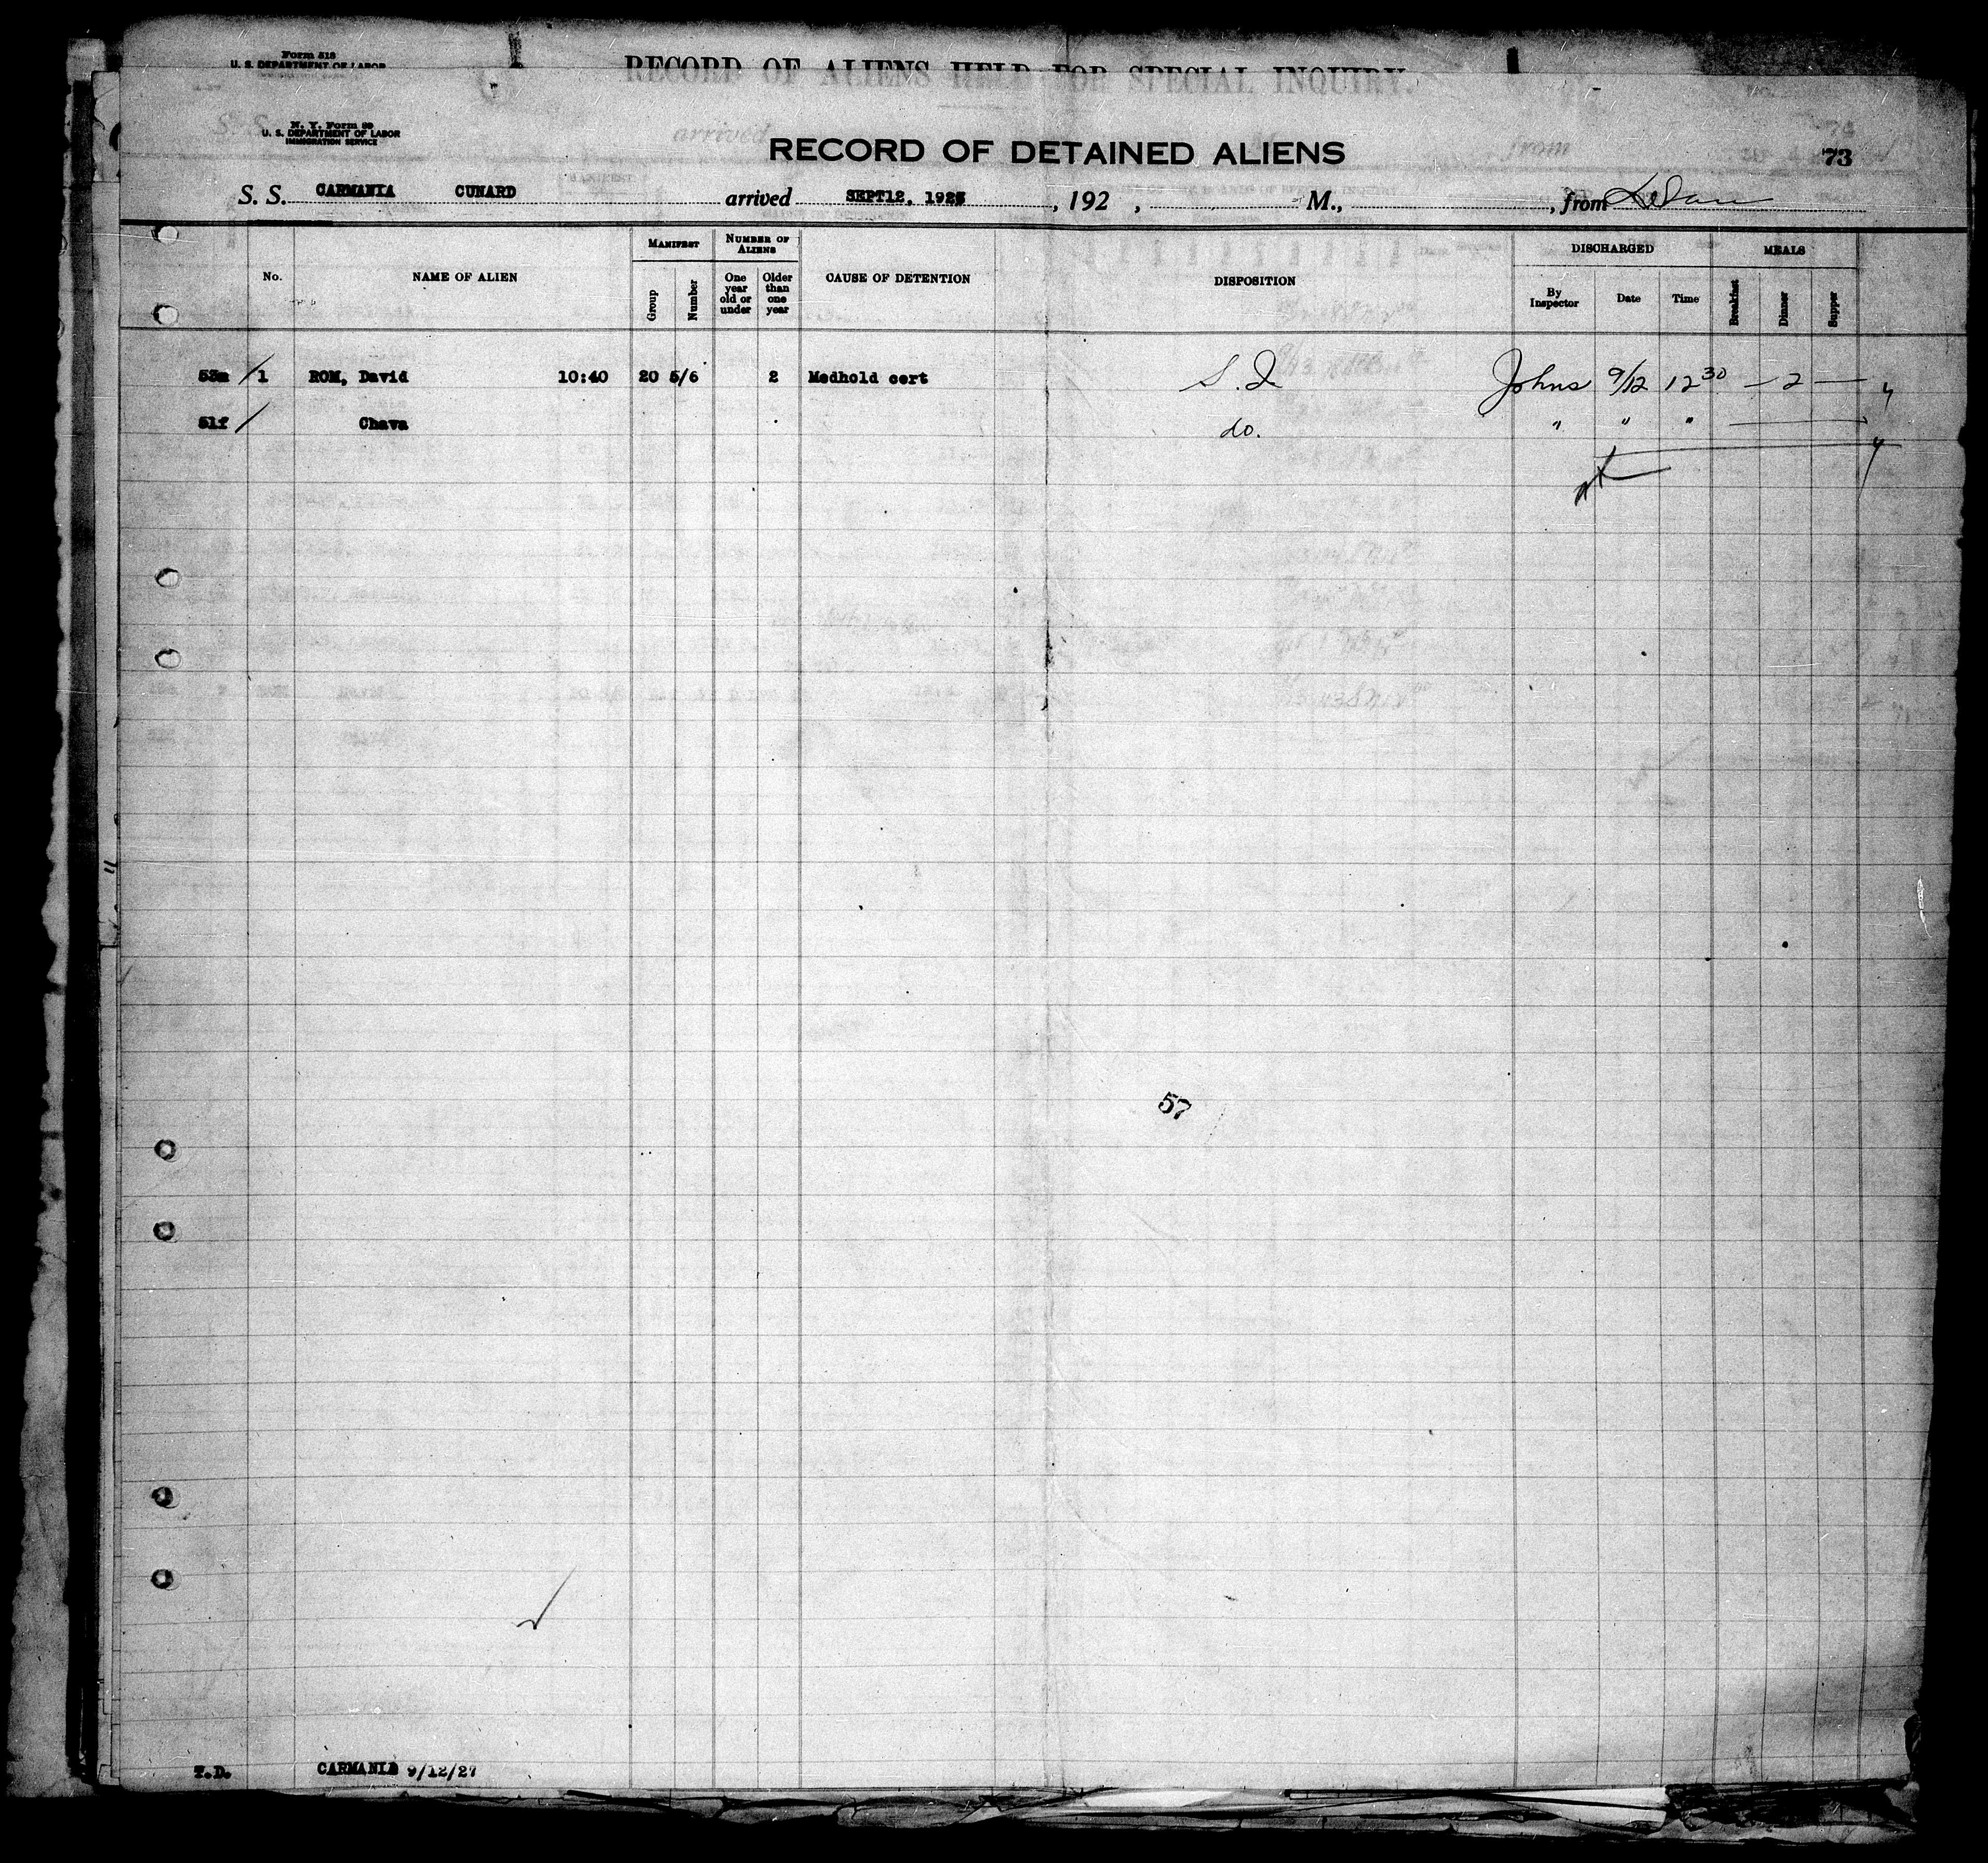 Form 518
U. S. DEPARTMENT OF LABOR
RECORD OF ALIENS HELD FOR SPECIAL INQUIRY.
N. Y. Form 99
U. S. DEPARTMENT OF LABOR
IMMIGRATION SERVICE
RECORD OF DETAINED ALIENS
73
S. S. CARMANIA CUNARD arrived SEPT12, 192 , 192 , M., , from
No. NAME OF ALIEN MANIFEST Group Number NUMBER OF ALIENS One year old or under Older than one year CAUSE OF DETENTION DISPOSITION DISCHARGED By Inspector Date Time MEALS Breakfast Dinner Supper
53m / 1 ROM, David 10:40 20 5/6 2 Medhold cert S. I Johns 9/12 12 30 — 2 —
51f / Chava do. " " "
57
T.D. CARMANIA 9/12/27